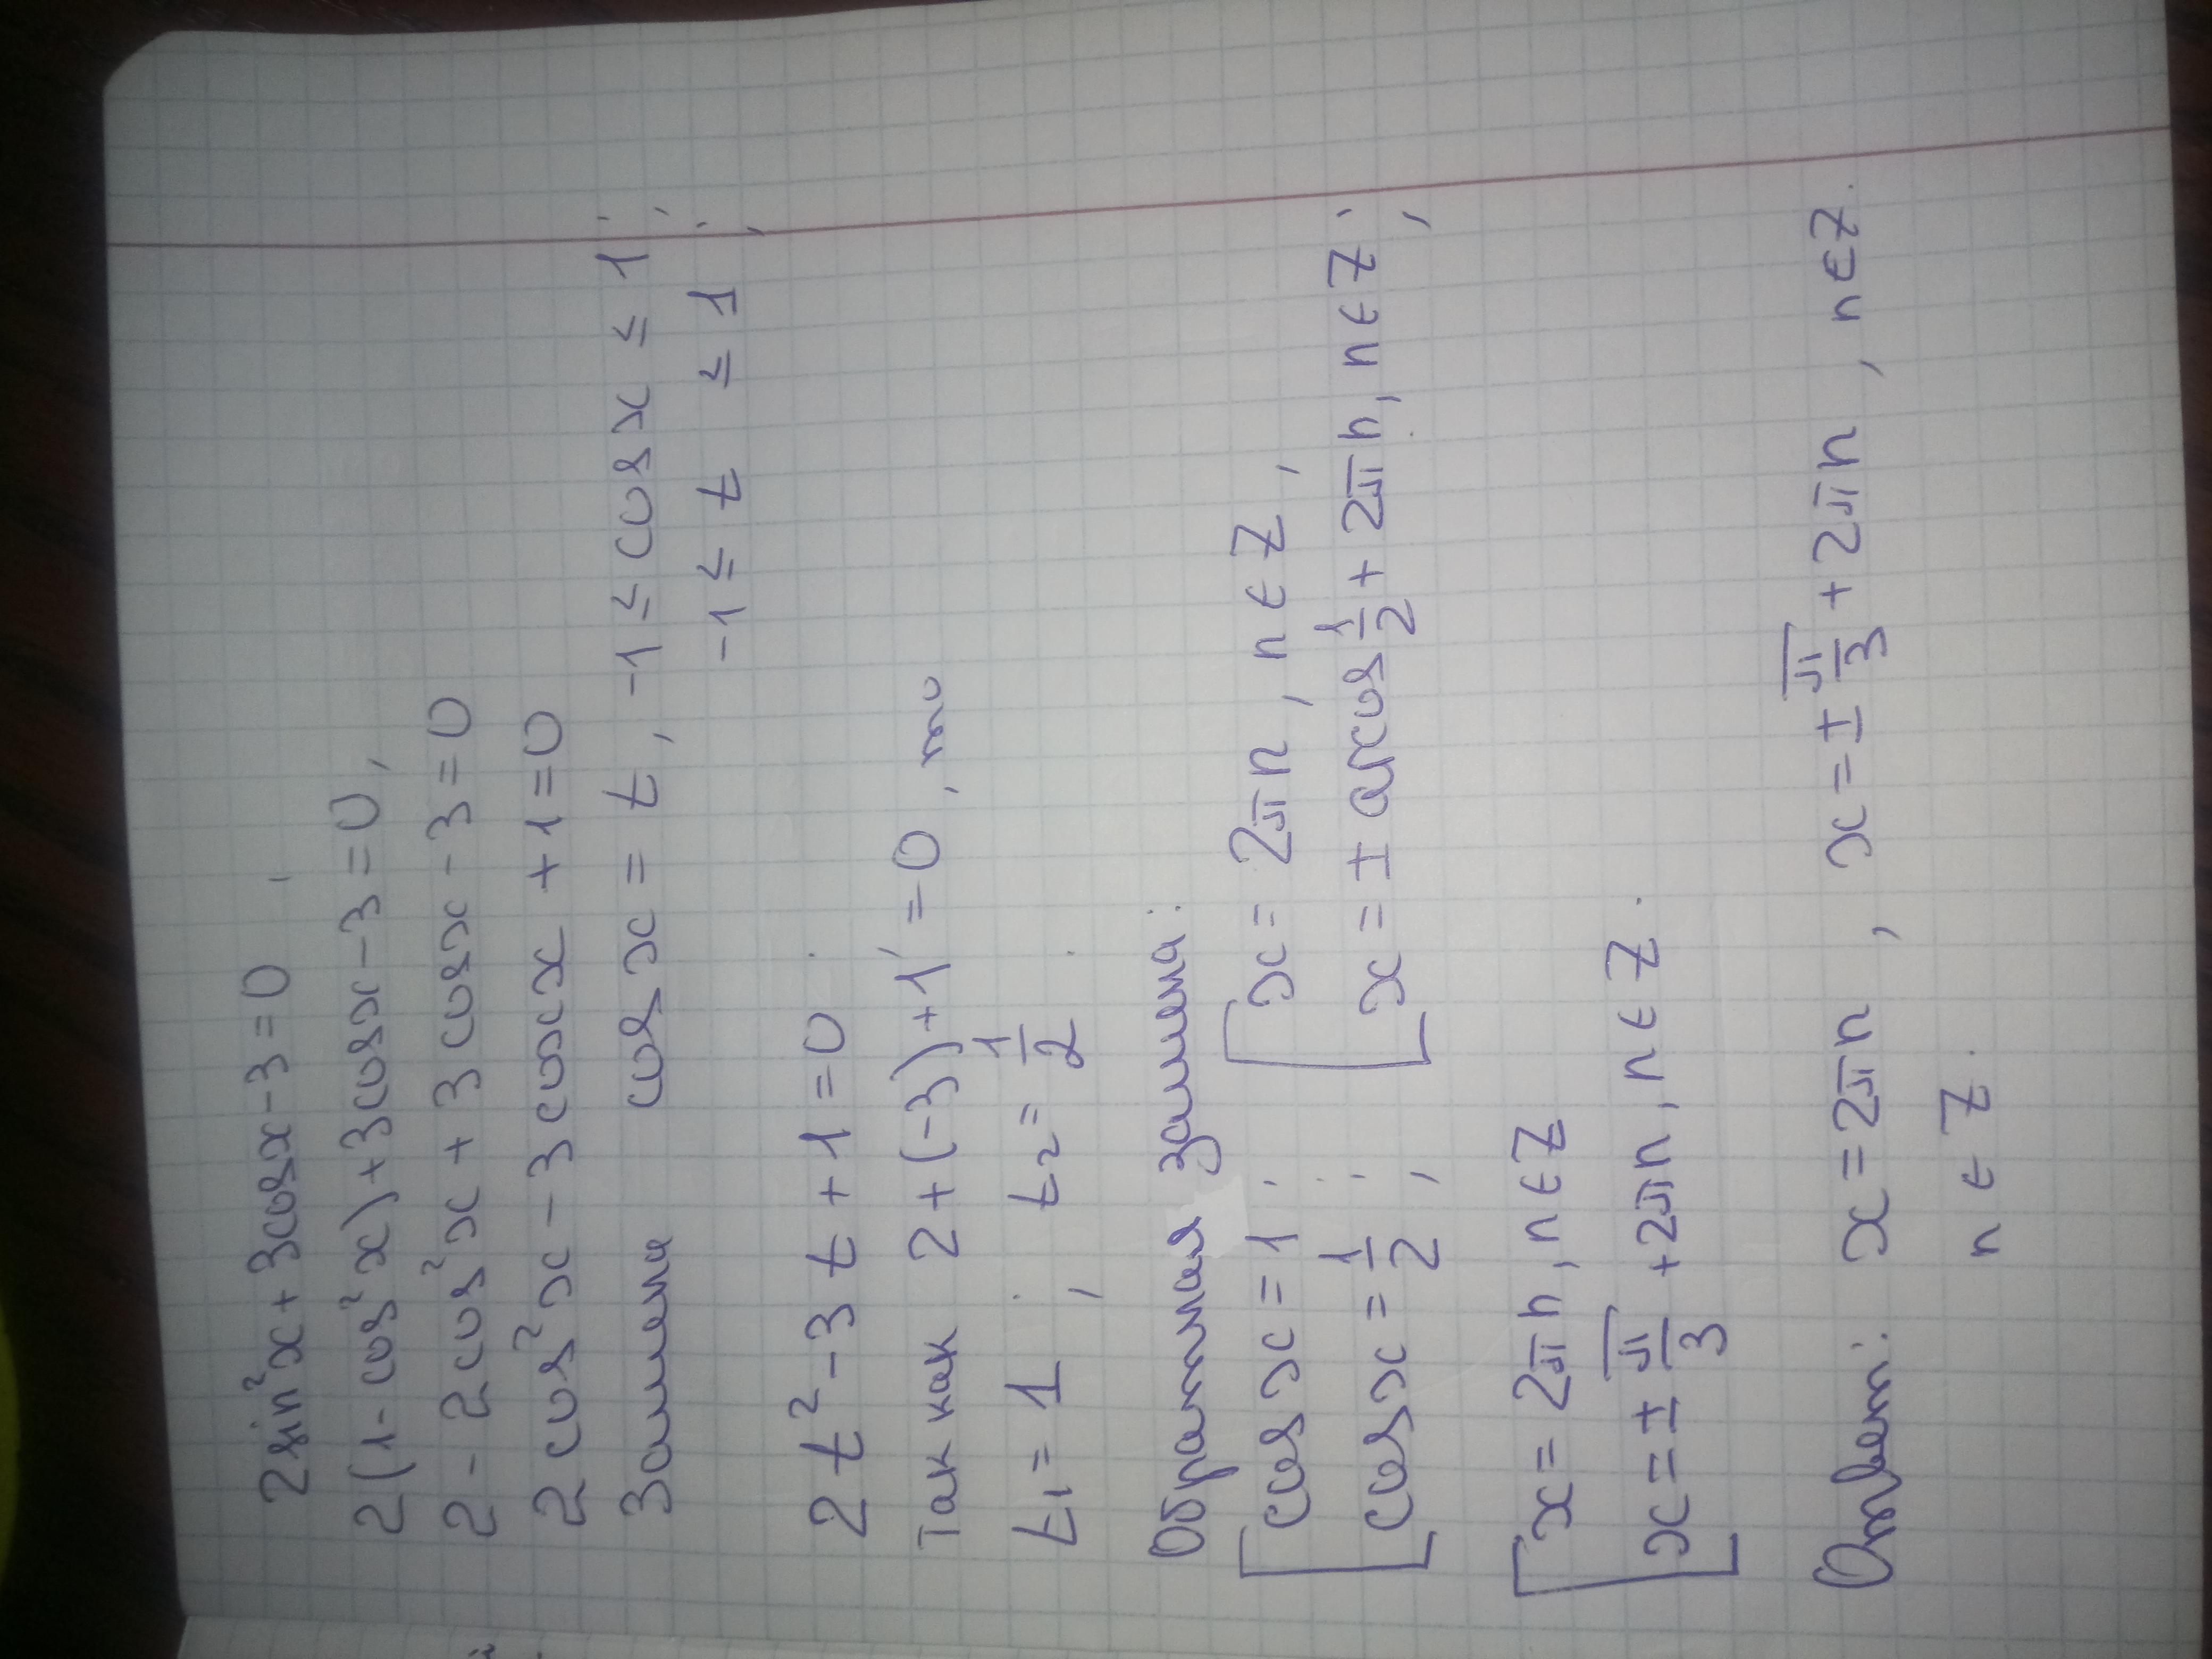 2sin²x+3cosx-3=0,
2(1-cos²x)+3cosx-3=0,
2-2cos²x+3cosx-3=0
2cos²x-3cosx+1=0
Замена cosx=t, -1≤cosx≤1;
-1≤t≤1;
2t²-3t+1=0.
Так как 2+(-3)+1=0, то
t₁=1; t₂=1/2.
Обратная замена:
[cosx=1; [x=2πn, n∈Z,
[cosx=1/2; [x=±arccos1/2+2πn, n∈Z;
[x=2πn, n∈Z
[x=±π/3+2πn, n∈Z.
Ответ: x=2πn, x=±π/3+2πn, n∈Z.
n∈Z.